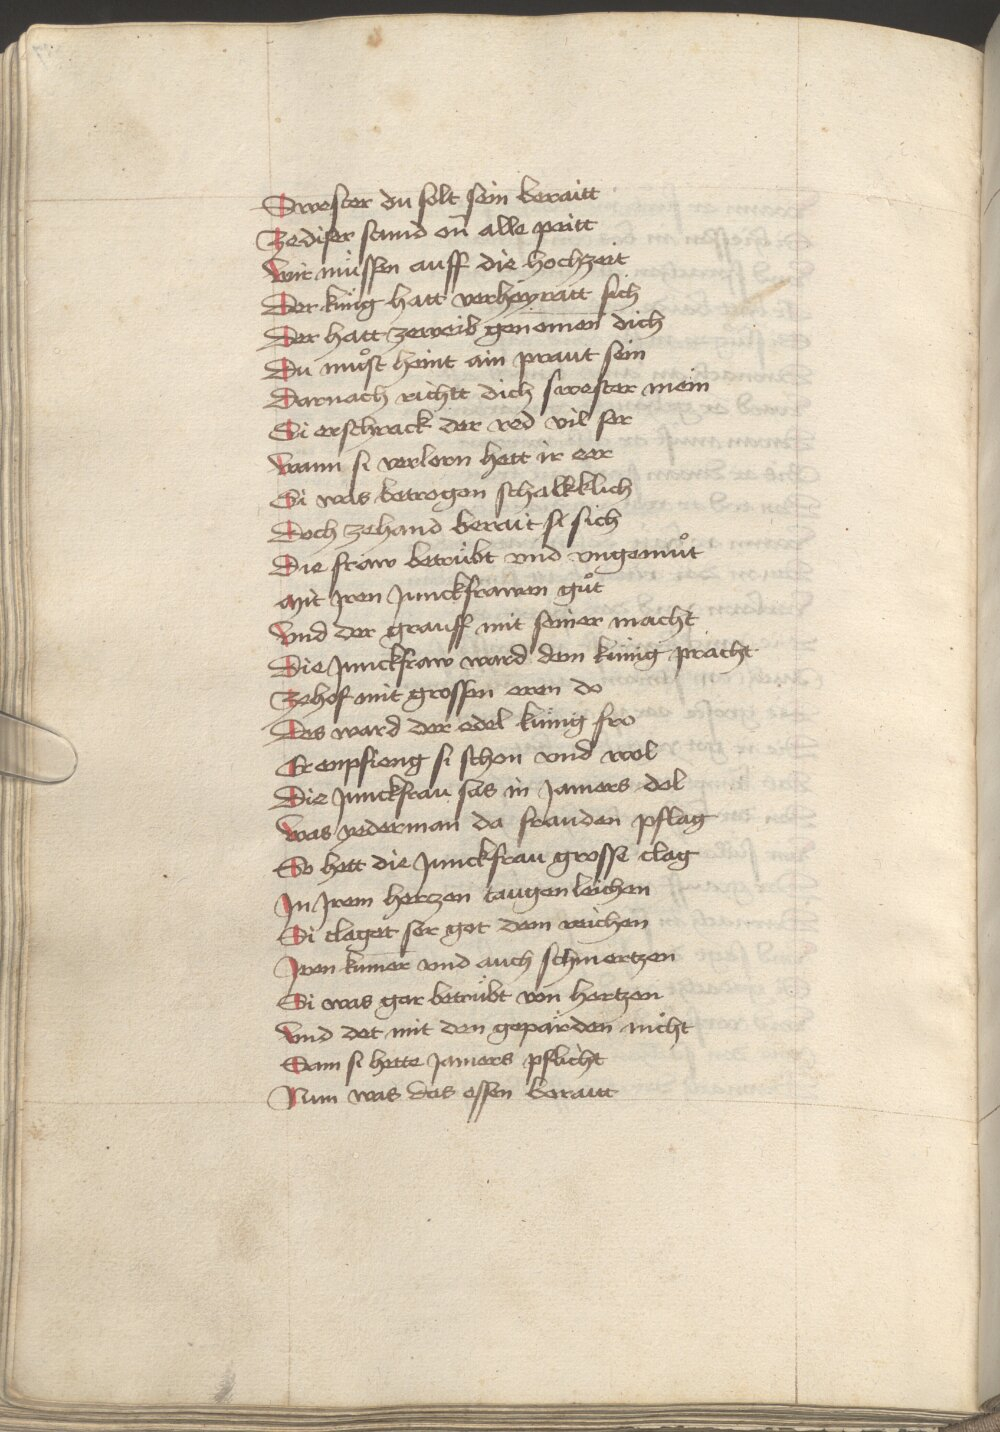 Swester du solt sein beraitt
Zediser stund on̄ alle peitt
Wir müssen auff die hochzeit
Der küng hatt verheyratt sich
Der hatt zeweib genomen dich
Du muͦst heint ain praut sein
Darnach richtt dich swester mein
Si erschrack der red vil ser
Wann si verlorn hett ir eer
Si was betrogen schalkklich
Doch zehand berait si sich
Die fraw betrübt vnd vngemuͦt
Mit Jren Junckfrawen guͦt
Vnd der grauff mit seiner macht
Die Junckfraw ward dem künig pracht
Zehof mit grossen eren do
Des ward der edel künig fro
Er enpfieng si schon vnd wol
Die Junckfrau sas in Jamers dol
Was yederman da frauden pflag
So hett die Junckfrau grosse clag
In Jrem herzen taugenleichen
Si claget ser got dem reichen
Jren kumer vnd auch schmertzen
Si was gar betrübt von hertzen
Vnd det mit den gepärden nicht
Sam si hette Jamers pflicht
Nun was das essen beraitt